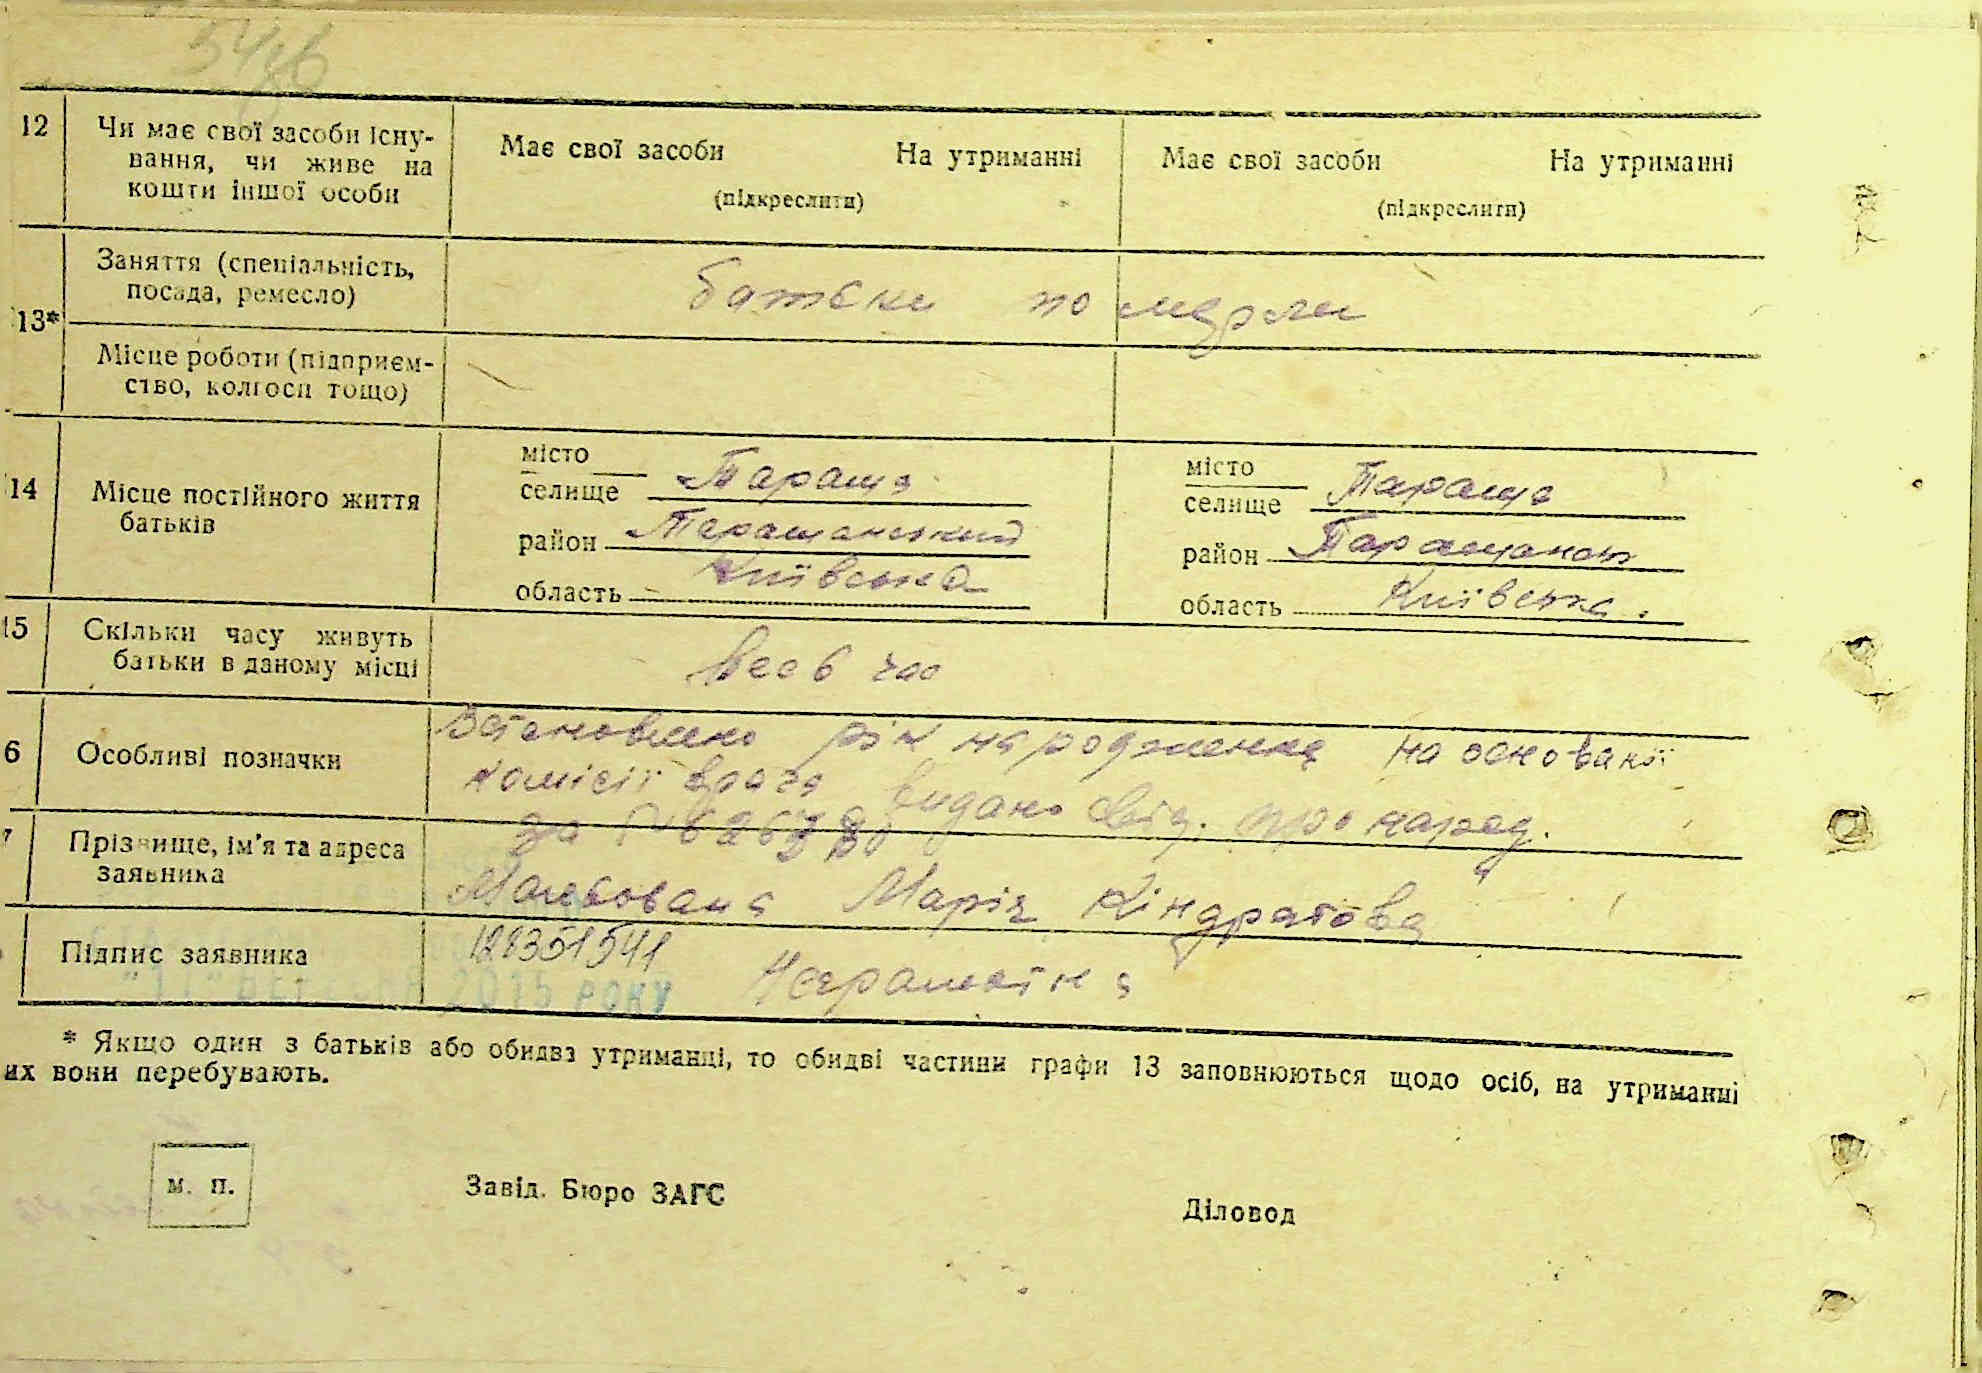 12 Чи має свої засоби існу-
вання, чи живе на
кошти іншої особи
Має свої засоби На утриманні
(підкреслити)
Має свої засоби На утриманні
(підкреслити)
13*
Заняття (спеціальність,
посада, ремесло)
батьки по мерли
Місце роботи (підприєм-
ство, колгосп тощо)
14 Місце постійного життя
батьків
місто
селище Тараща
район Таращанський
область Київська
місто
селище Тараща
район Таращанськ
область Київська.
15 Скільки часу живуть
батьки в даному місці
весь час
6 Особливі позначки
Встановлено рік народження на основанії
комісії врача видано свід. про народ.
за №
7 Прізвище, ім'я та адреса
заявника
Марія Кіндратова
Підпис заявника
128351541
Неграмотна
"11" ВЕРЕСНЯ 2015 РОКУ
* Якщо один з батьків або обидва утриманці, то обидві частини графи 13 заповнюються щодо осіб, на утриманні
их вони перебувають.
м. п.
Завід. Бюро ЗАГС
Діловод